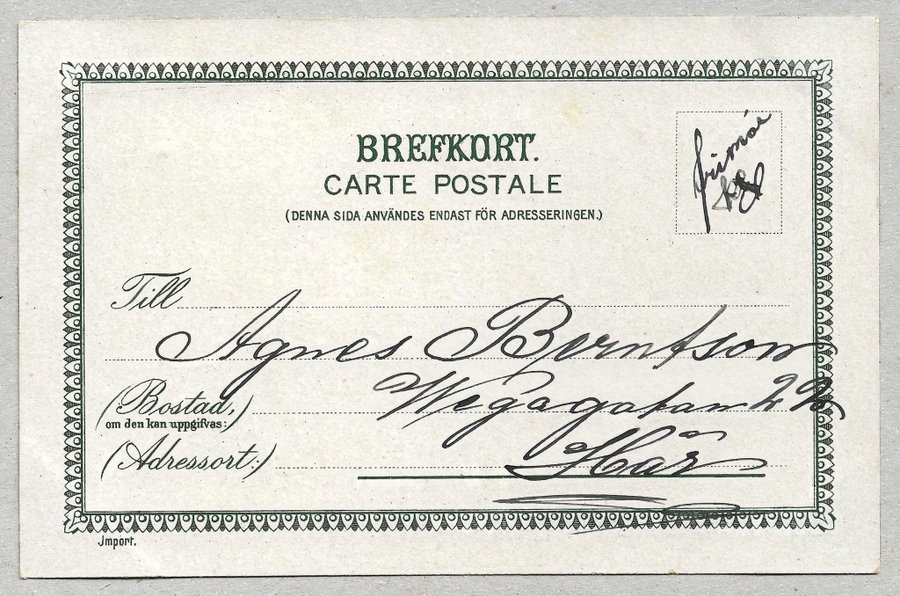 BREFKORT.
CARTE POSTALE
(DENNA SIDA ANVÄNDES ENDAST FÖR ADRESSERINGEN.)
Till
Agnes Berntson
(Bostad,)
om den kan uppgifvas:
Wegagatan 22
(Adressort:)
Här
Import.